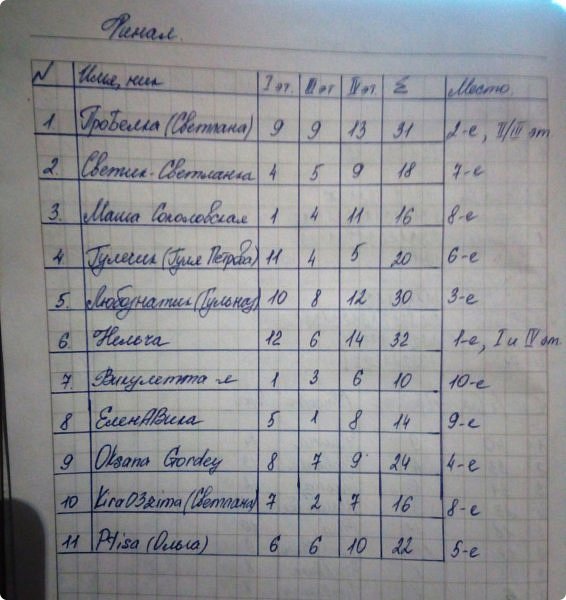 Финал.
N Имя, ник I эт. III эт IV эт Σ Место
1. ПроБелка (Светлана) 9 9 13 31 2-е, II/III эт.
2. Светик-Светланка 4 5 9 18 7-е
3. Маша Соколовская 1 4 11 16 8-е
4. Гулечик (Гуля Петрова) 11 4 5 20 6-е
5. Любознатик (Гульназ) 10 8 12 30 3-е
6. Нельча 12 6 14 32 1-е, I и IV эт.
7. Викулетта-я 1 3 6 10 10-е
8 ЕленАВика 5 1 8 14 9-е
9 Oksana Gordey 8 7 9 24 4-е
10 Kira03zima (Светлана) 7 2 7 16 8-е
11 Ptisa (Ольга) 6 6 10 22 5-е